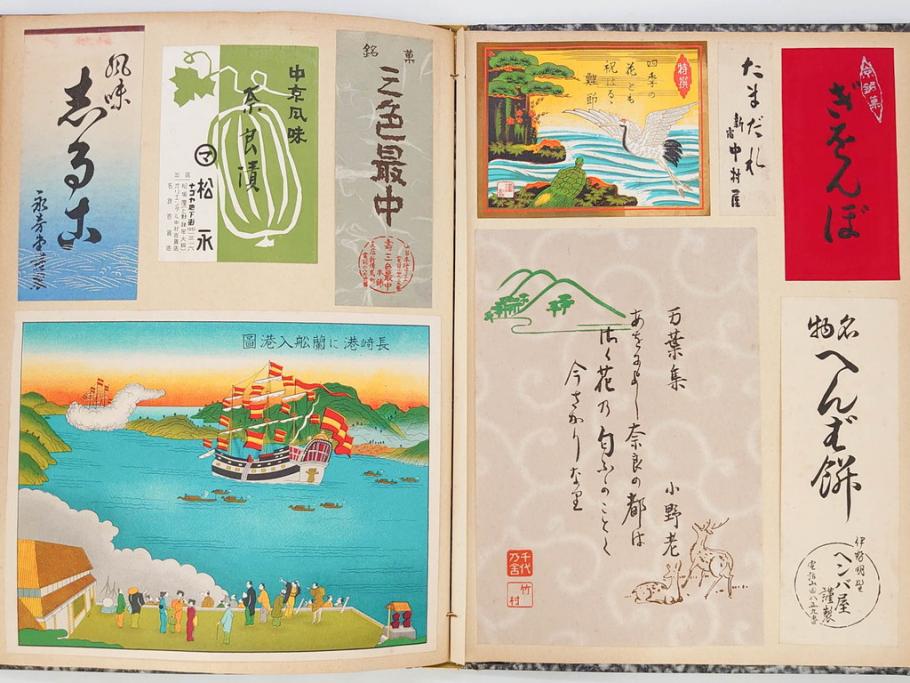 風味
志るこ
中京風味
奈良漬
マ
松永
銘菓
三色最中
壽三色最中本舗
長崎港に蘭船入港圖
四季の
花とも
祝はる
雞節
特撰
たまだれ
新宿 中村屋
京銘菓
ぎをんぼ
万葉集
小野老
あをによし奈良の都は
さく花乃匂ふかことく
今さかりなり
千代乃舎
竹村
名物
へんば餅
伊勢明野
ヘンバ屋
謹製